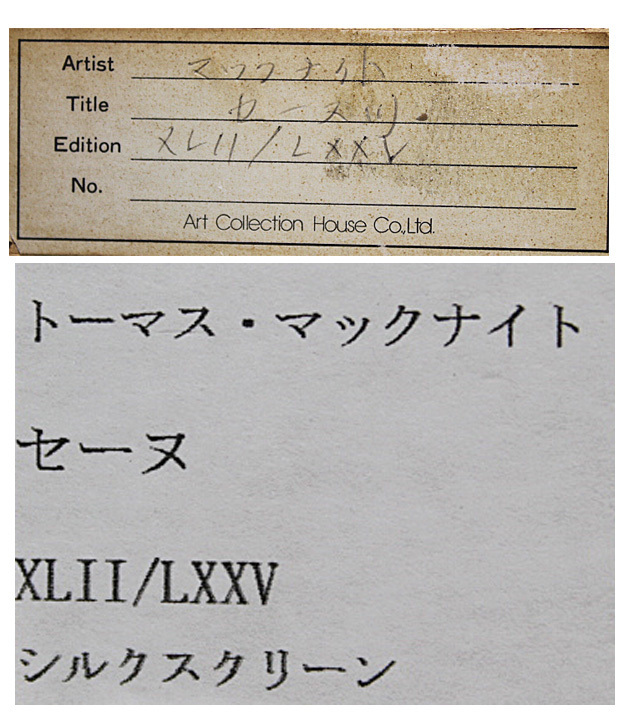 Artist マックナイト
Title セーヌ川
Edition XLII/LXXV
No.
Art Collection House Co.,Ltd.
トーマス・マックナイト
セーヌ
XLII/LXXV
シルクスクリーン